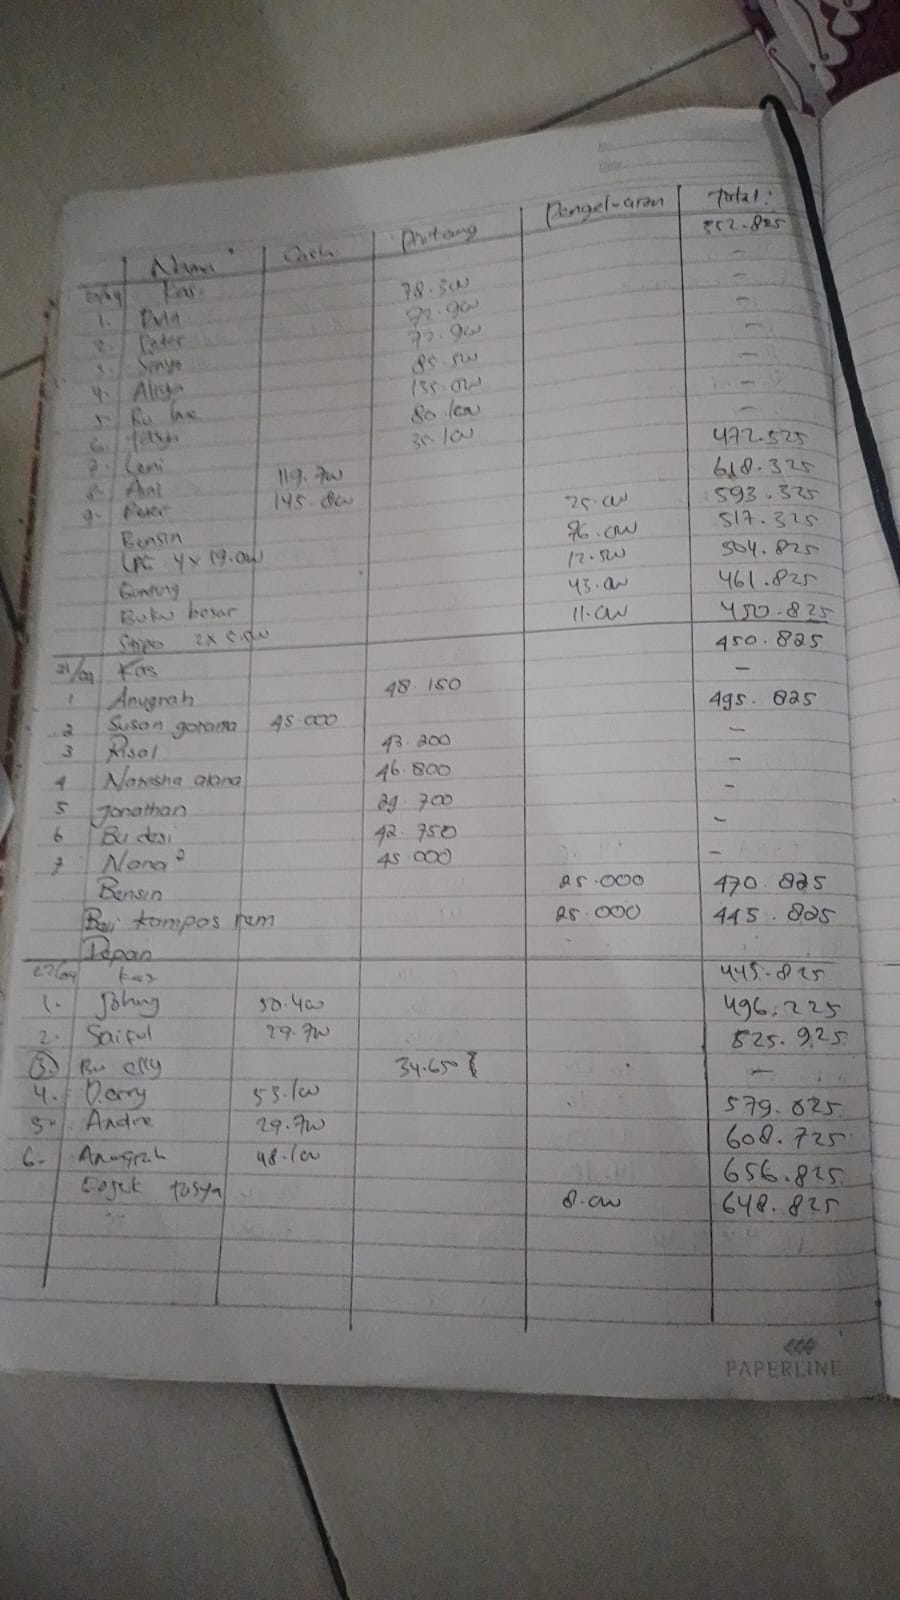 Nama Cash Piutang Pengeluaran Total:
Kas 352.825
1. 78.300 -
2. Peter 72.900 -
3. 72.900 -
4. Aliya 85.500 -
5. Bu 135.000 -
6. Tasya 80.100 -
7. Leni 35.100 -
8. Ani 119.700 472.525
9. Peter 145.800 618.325
Bensin 25.000 593.325
LPG 4 x 19.000 76.000 517.325
Gunting 12.500 504.825
Buku besar 43.000 461.825
2 x 5.500 11.000 450.825
21/04 Kas 450.825
1 Anugrah 48.150 -
2 Susan gotama 45.000 495.825
3 Risal 43.200 -
4 Natasha 46.800 -
5 Jonathan 29.700 -
6 Bu desi 42.750 -
7 Nana² 45.000 -
Bensin 25.000 470.825
Beli kampas rem 25.000 445.825
Depan
22/04 kas 445.825
1. Johny 50.400 496.225
2. Saiful 29.700 525.925
3. Bu elly 34.650 -
4. Derry 53.100 579.025
5. Andre 29.700 608.725
6. Anugrah 48.100 656.825
Gojek tasya 8.000 648.825
PAPERLINE